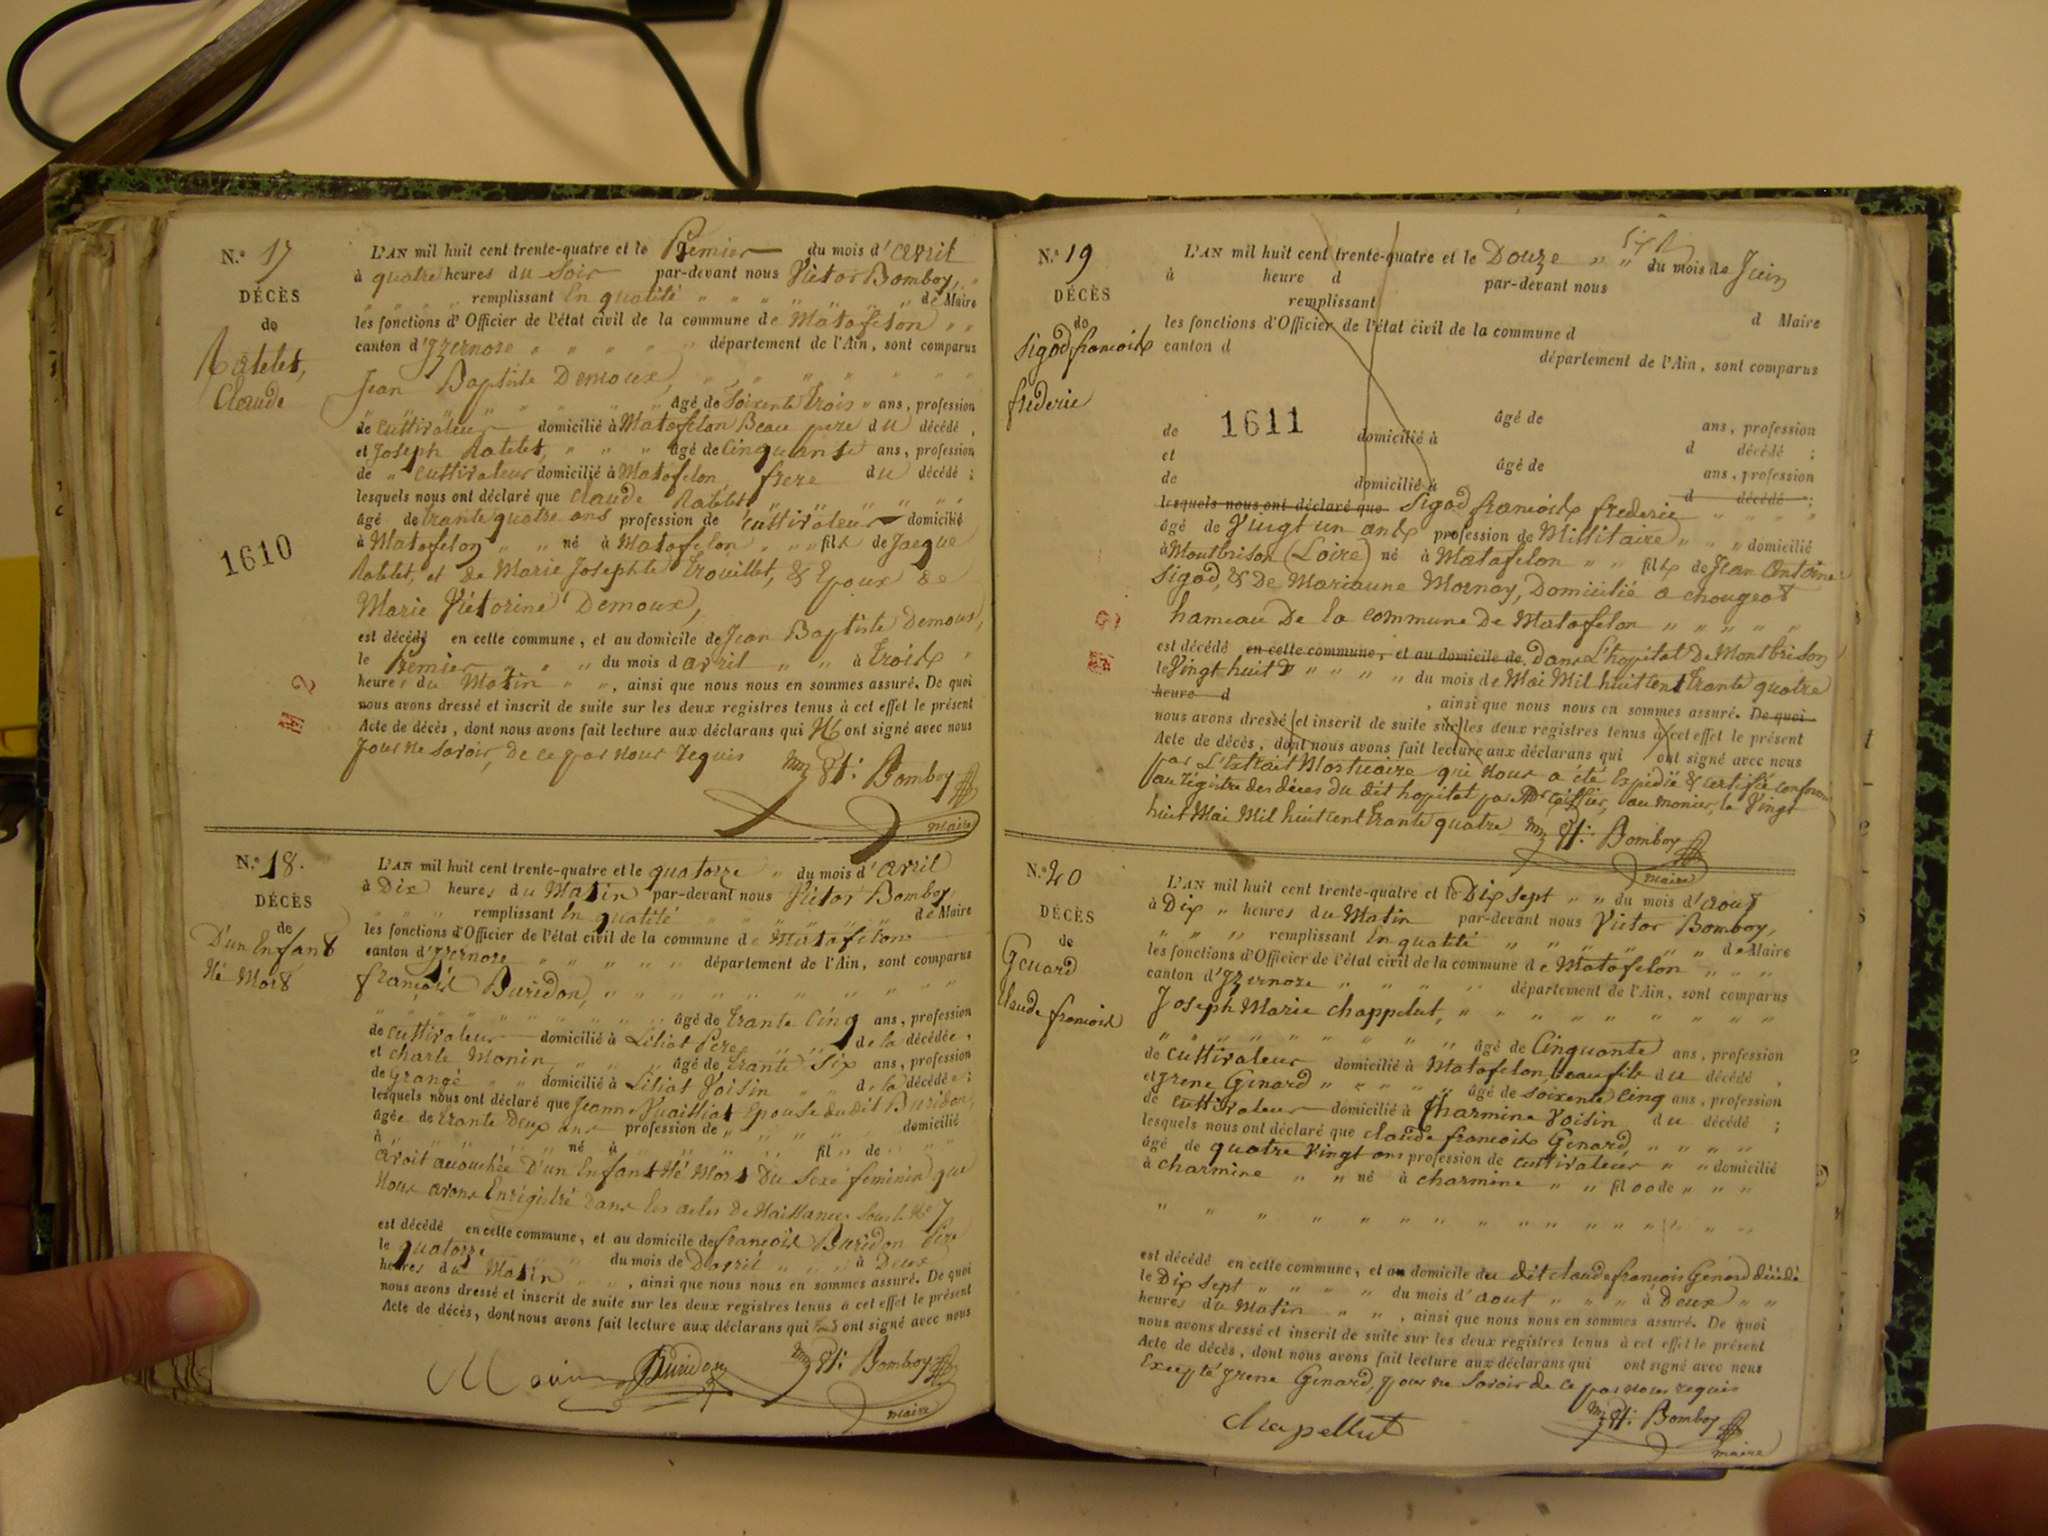 N.o 17
DÉCÈS
de
Rablet,
Claude
1610
L'AN mil huit cent trente-quatre et le Premier du mois d'avril
à quatre heures du Soir par-devant nous Victor Bomboy,
remplissant En qualité de Maire
les fonctions d'Officier de l'état civil de la commune de Matafelon
canton d'Izernore département de l'Ain, sont comparus
Jean Baptiste Demoux,
âgé de Soixente trois ans, profession
de Cultivateur domicilié à Matafelon Beau pere du décédé,
et Joseph Rablet, âgé de Cinquante ans, profession
de Cultivateur domicilié à Matafelon, frere du décédé;
lesquels nous ont déclaré que Claude Rablet
âgé de trante quatre ans profession de Cultivateur domicilié
à Matafelon né à Matafelon fils de Jacque
Rablet, et de Marie Josephte Trouillet, & Epoux de
Marie Victorine Demoux,
est décédé en cette commune, et au domicile de Jean Baptiste Demoux,
le Premier du mois d'avril à trois
heures du Matin, ainsi que nous nous en sommes assuré. De quoi
nous avons dressé et inscrit de suite sur les deux registres tenus à cet effet le présent
Acte de décès, dont nous avons fait lecture aux déclarans qui N ont signé avec nous
pour ne savoir, de ce par nous requis Bomboy
maire
N.o 18.
DÉCÈS
de
D'un Enfant
Né Mort
L'AN mil huit cent trente-quatre et le quatorze du mois d'avril
à Dix heures du Matin par-devant nous Victor Bomboy,
remplissant En qualité de Maire
les fonctions d'Officier de l'état civil de la commune de Matafelon
canton d'Izernore département de l'Ain, sont comparus
François Buridon,
âgé de trante Cinq ans, profession
de Cultivateur domicilié à Liliat Pere de la décédée,
et Charle Monin, âgé de trante Six ans, profession
de Grangé domicilié à Liliat Voisin de la décédée;
lesquels nous ont déclaré que Jeanne Vuaillat Epouse du dit Buridon,
âgée de trante Deux ans profession de domicilié
à né à fil de
avoit accouchée D'un Enfant Né Mort Du Sexe feminin que
Nous avons Enrégistré dans les actes de Naissances Sous le No 7
est décédé en cette commune, et au domicile de françois Buridon Pere
le quatorze du mois de Davril à Deux
heures du Matin, ainsi que nous nous en sommes assuré. De quoi
nous avons dressé et inscrit de suite sur les deux registres tenus à cet effet le présent
Acte de décès, dont nous avons fait lecture aux déclarans qui ont signé avec nous
Monin Buridon Bomboy
maire
N.o 19
DÉCÈS
de
Sigod francois
frederic
1611
L'AN mil huit cent trente-quatre et le Douze du mois de Juin
à heure d par-devant nous
remplissant d Maire
les fonctions d'Officier de l'état civil de la commune d
canton d département de l'Ain, sont comparus
âgé de ans, profession
de domicilié à d décédé;
et âgé de ans, profession
de domicilié à d décédé;
lesquels nous ont déclaré que Sigod francois frederic
âgé de Vingt un ans profession de Millitaire domicilié
à Montbrison (Loire) né à Matafelon fils de Jean Antoine
Sigod, & De Marianne Mornay, Domicilié a chougeat
hameau De la commune De Matafelon
est décédé en cette commune, et au domicile de Dans L'hopital De Montbrison
le Vingt huit du mois de Mai Mil huit cent trante quatre
heure d, ainsi que nous nous en sommes assuré. De quoi
nous avons dressé et inscrit de suite sur les deux registres tenus à cet effet le présent
Acte de décès, dont nous avons fait lecture aux déclarans qui ont signé avec nous
par L'Extrait Mortuaire qui Nous a été Expedié & certifié conforme
au régistre des déces du dit hopital par aumonier, le Vingt
huit Mai Mil huit cent trante quatre Bomboy
maire
N.o 20
DÉCÈS
de
Genard
Claude francois
L'AN mil huit cent trente-quatre et le Dix Sept du mois d'aout
à Dix heures du Matin par-devant nous Victor Bomboy,
remplissant En qualité de Maire
les fonctions d'Officier de l'état civil de la commune de Matafelon
canton d'Izernore département de l'Ain, sont comparus
Joseph Marie Chappelut,
âgé de Cinquante ans, profession
de Cultivateur domicilié à Matafelon, beau fils du décédé,
et Irene Genard âgé de soixente cinq ans, profession
de Cultivateur domicilié à Charmine Voisin du décédé;
lesquels nous ont déclaré que Claude francois Genard,
âgé de quatre Vingt ans profession de Cultivateur domicilié
à Charmine né à Charmine fil de
est décédé en cette commune, et au domicile du dit Claude françois Genard décédé
le Dix Sept du mois d'aout à Deux
heures du Matin, ainsi que nous nous en sommes assuré. De quoi
nous avons dressé et inscrit de suite sur les deux registres tenus à cet effet le présent
Acte de décès, dont nous avons fait lecture aux déclarans qui ont signé avec nous
Excepté Irene Genard, pour ne Savoir de ce par nous requis
Chapellut Bomboy
maire